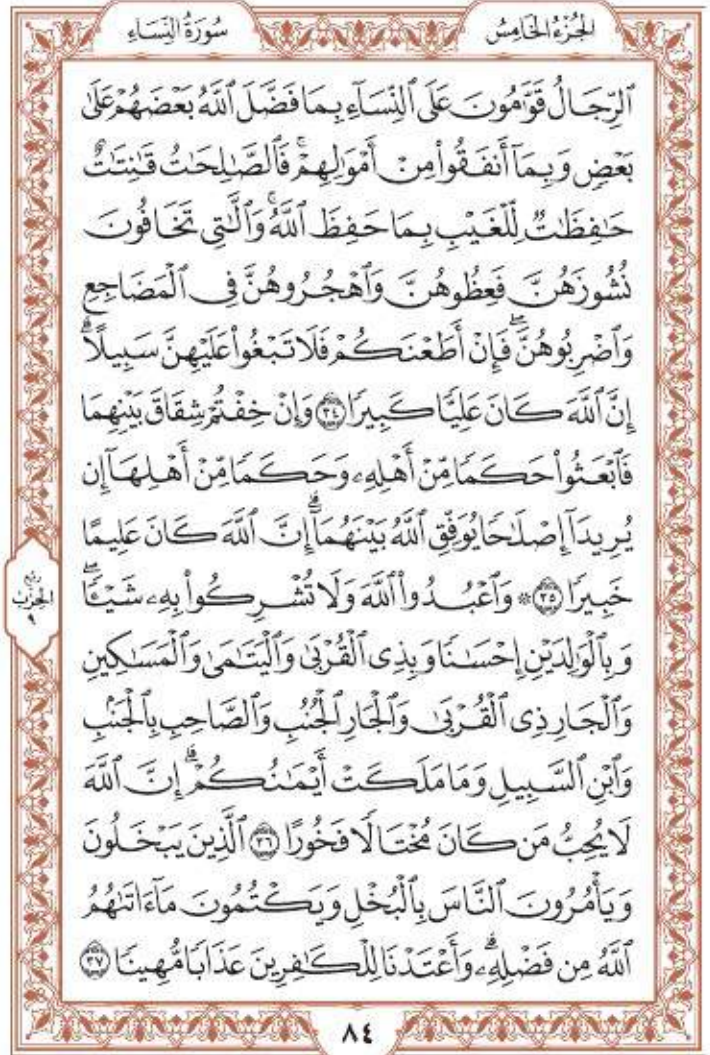 الجُزْءُ الخَامِسُ
سُورَةُ النِّسَاءِ
ٱلرِّجَالُ قَوَّٰمُونَ عَلَى ٱلنِّسَآءِ بِمَا فَضَّلَ ٱللَّهُ بَعْضَهُمْ عَلَىٰ
بَعْضٖ وَبِمَآ أَنفَقُواْ مِنْ أَمْوَٰلِهِمْۚ فَٱلصَّٰلِحَٰتُ قَٰنِتَٰتٌ
حَٰفِظَٰتٞ لِّلْغَيْبِ بِمَا حَفِظَ ٱللَّهُۚ وَٱلَّٰتِي تَخَافُونَ
نُشُوزَهُنَّ فَعِظُوهُنَّ وَٱهْجُرُوهُنَّ فِي ٱلْمَضَاجِعِ
وَٱضْرِبُوهُنَّۖ فَإِنْ أَطَعْنَكُمْ فَلَا تَبْغُواْ عَلَيْهِنَّ سَبِيلًاۗ
إِنَّ ٱللَّهَ كَانَ عَلِيّٗا كَبِيرٗا ٣٤ وَإِنْ خِفْتُمْ شِقَاقَ بَيْنِهِمَا
فَٱبْعَثُواْ حَكَمٗا مِّنْ أَهْلِهِۦ وَحَكَمٗا مِّنْ أَهْلِهَآ إِن
يُرِيدَآ إِصْلَٰحٗا يُوَفِّقِ ٱللَّهُ بَيْنَهُمَآۗ إِنَّ ٱللَّهَ كَانَ عَلِيمًا
خَبِيرٗا ٣٥ ۞ وَٱعْبُدُواْ ٱللَّهَ وَلَا تُشْرِكُواْ بِهِۦ شَيْـٔٗاۖ
وَبِٱلْوَٰلِدَيْنِ إِحْسَٰنٗا وَبِذِي ٱلْقُرْبَىٰ وَٱلْيَتَٰمَىٰ وَٱلْمَسَٰكِينِ
وَٱلْجَارِ ذِي ٱلْقُرْبَىٰ وَٱلْجَارِ ٱلْجُنُبِ وَٱلصَّاحِبِ بِٱلْجَنۢبِ
وَٱبْنِ ٱلسَّبِيلِ وَمَا مَلَكَتْ أَيْمَٰنُكُمْۗ إِنَّ ٱللَّهَ
لَا يُحِبُّ مَن كَانَ مُخْتَالٗا فَخُورًا ٣٦ ٱلَّذِينَ يَبْخَلُونَ
وَيَأْمُرُونَ ٱلنَّاسَ بِٱلْبُخْلِ وَيَكْتُمُونَ مَآ ءَاتَىٰهُمُ
ٱللَّهُ مِن فَضْلِهِۦۗ وَأَعْتَدْنَا لِلْكَٰفِرِينَ عَذَابٗا مُّهِينٗا ٣٧
ربع
الحزب
٩
٨٤